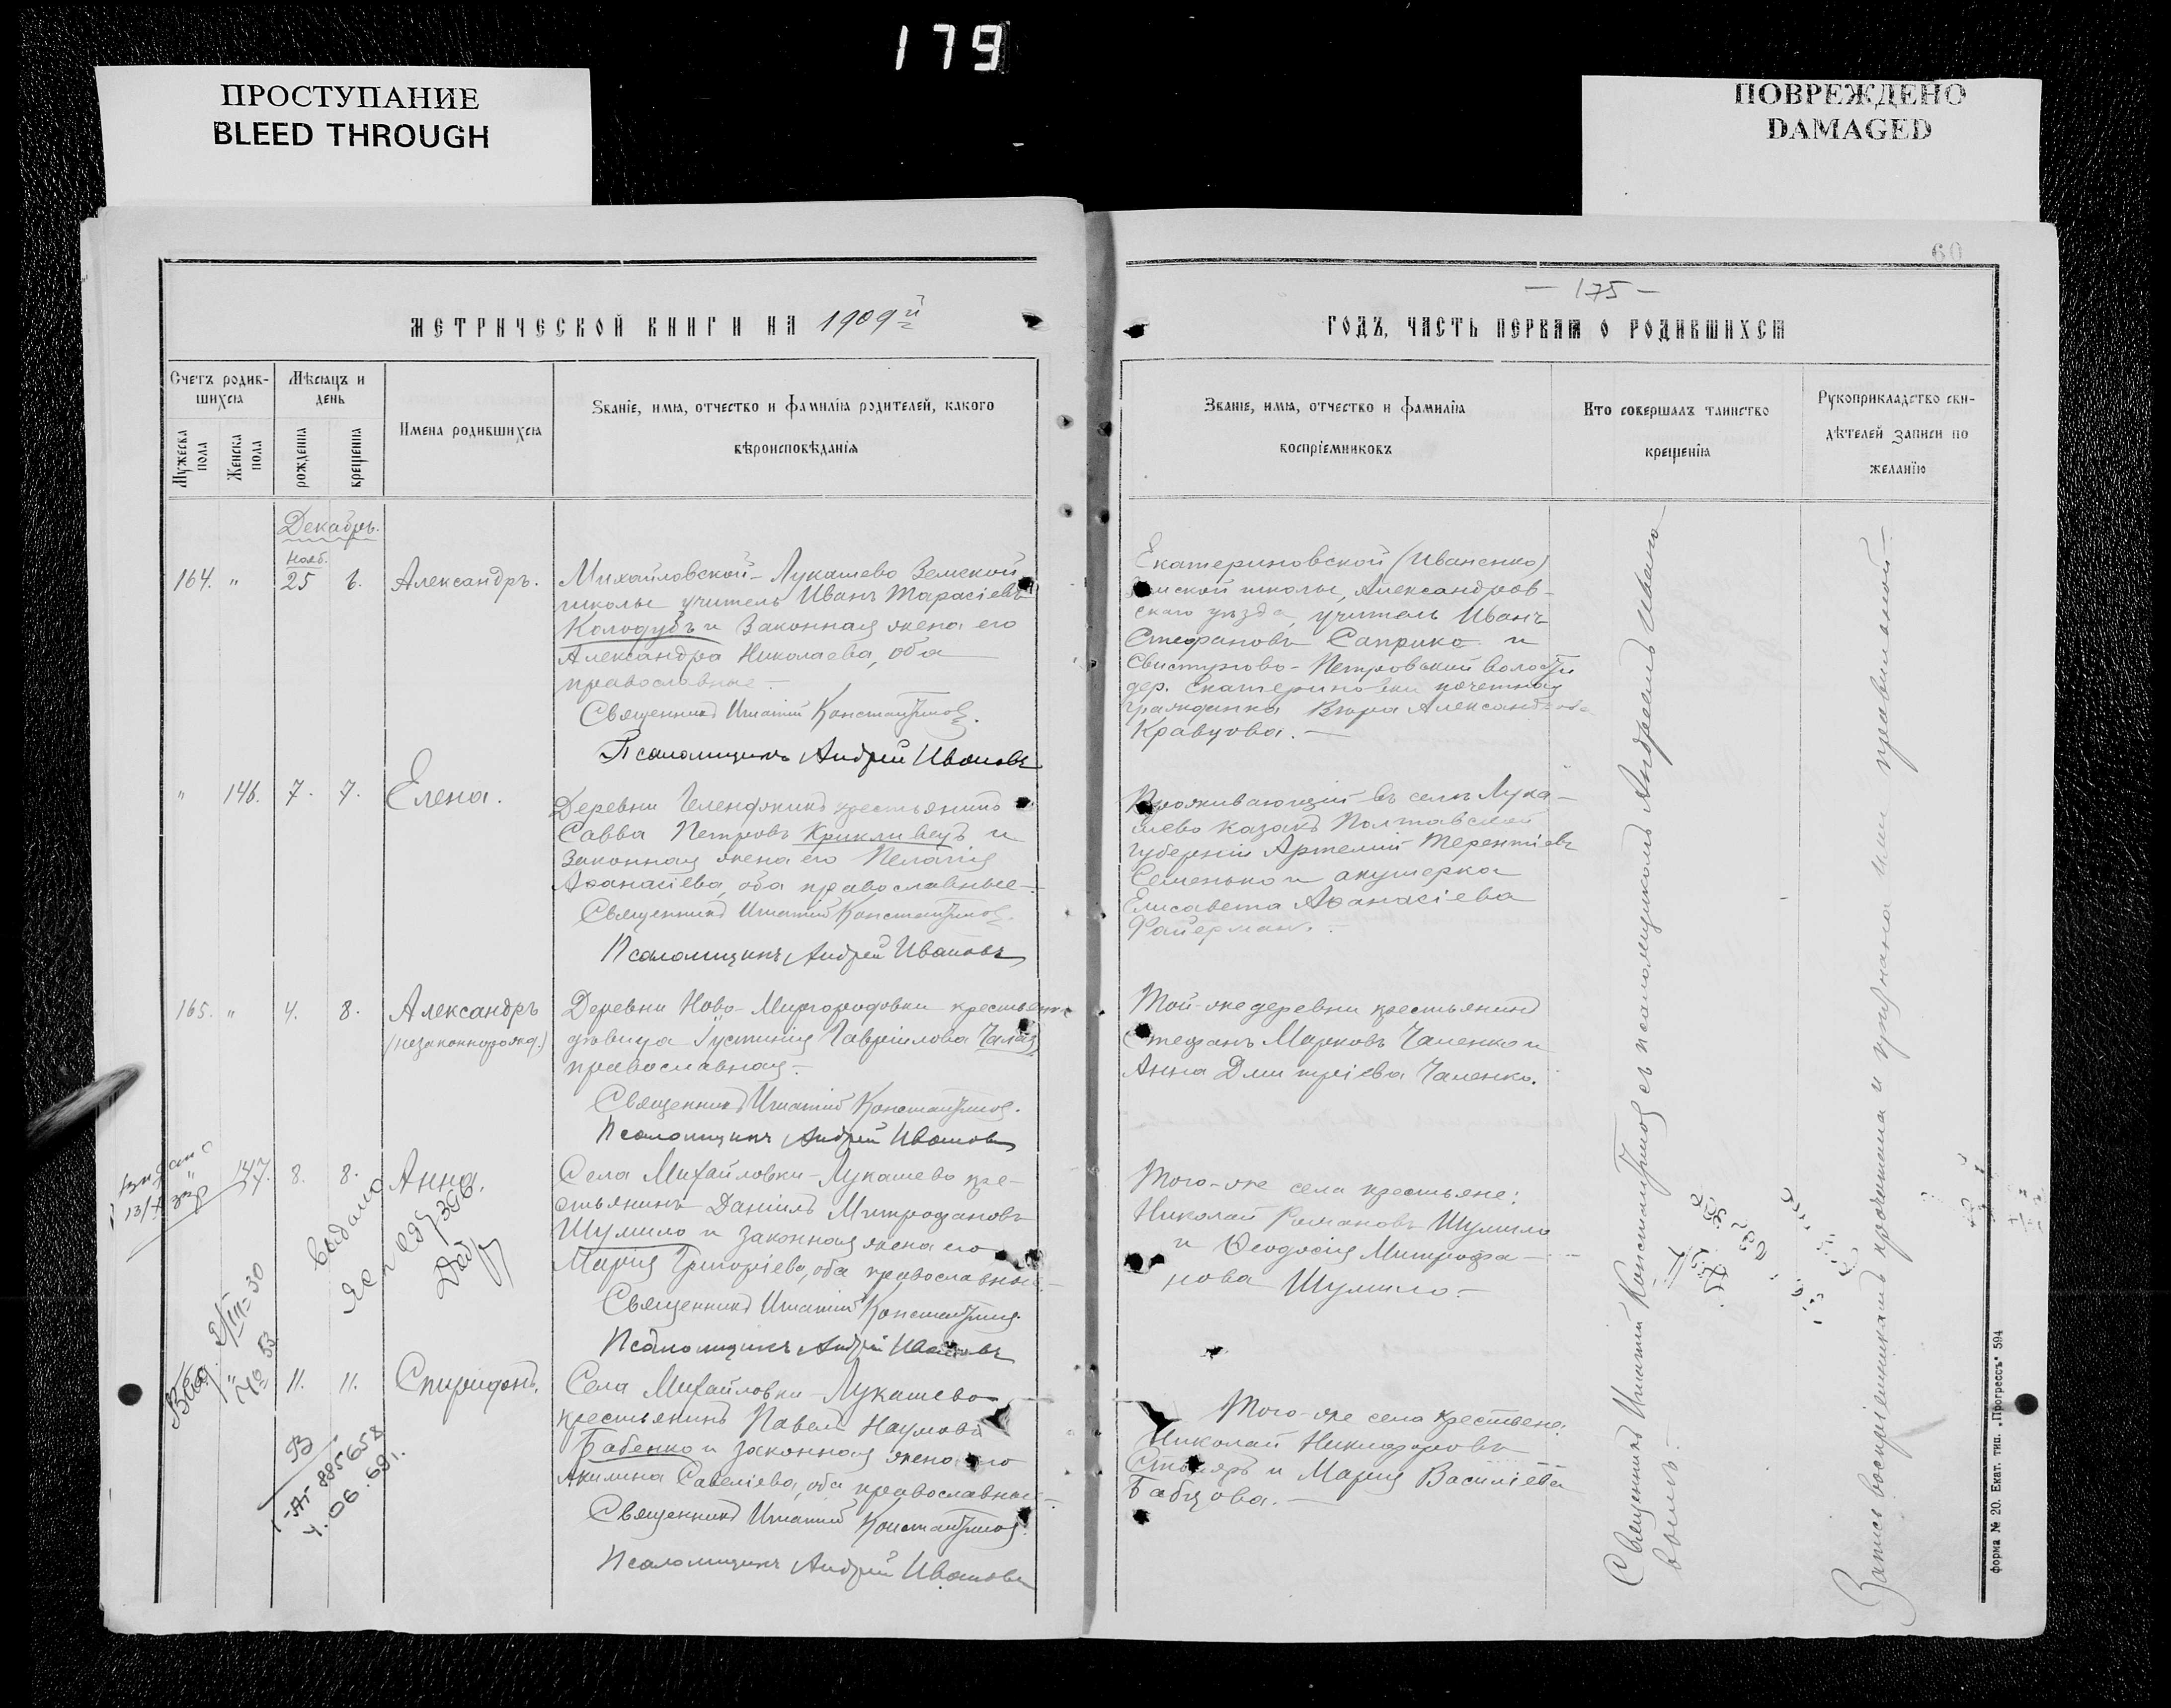 179
ПРОСТУПАНИЕ
BLEED THROUGH
ПОВРЕЖДЕНО
DAMAGED
МЕТРИЧЕСКОЙ КНИГИ НА 1909й
Счетъ родившихся
Мѣсяцъ и день
Мужеска пола
Женска пола
рожденія
крещенія
Имена родившихся
Званіе, имя, отчество и фамилія родителей, какого
вѣроисповѣданія
Декабрь.
Нояб.
164. " 25 6. Александръ.
Михайловской-Лукашево Земской
школы учитель Иванъ Тарасіевъ
Колодубъ и законная жена его
Александра Николаева, оба
православные.-
Священникъ Игнатій Константиновъ.
Псаломщикъ Андрей Ивановъ
" 146. 7. 7. Елена.
Деревни Геленджикъ крестьянинъ
Савва Петровъ Крикливецъ и
законная жена его Пелагія
Аѳанасіева, оба православные.-
Священникъ Игнатій Константиновъ.
Псаломщикъ Андрей Ивановъ
165. " 4. 8. Александръ
(незаконнорожд.)
Деревни Ново-Миргородовки крестьянка
дѣвица Іустинія Гавріилова Чалая
православная.-
Священникъ Игнатій Константиновъ.
Псаломщикъ Андрей Ивановъ
" 147. 8. 8. Анна.
Села Михайловки-Лукашево кре-
стьянинъ Даніилъ Митрофановъ
Шумило и законная жена его
Марія Григоріева, оба православные.
Священникъ Игнатій Константиновъ.
Псаломщикъ Андрей Ивановъ
" 11. 11. Спиридонъ.
Села Михайловки-Лукашево
крестьянинъ Павелъ Наумовъ
Бабенко и законная жена его
Акилина Савеліева, оба православные.-
Священникъ Игнатій Константиновъ.
Псаломщикъ Андрей Ивановъ
выдано
№ 53
60
- 175 -
ГОДЪ, ЧАСТЬ ПЕРВАЯ О РОДИВШИХСЯ
Званіе, имя, отчество и фамилія
воспріемниковъ
Кто совершалъ таинство
крещенія
Рукоприкладство сви-
дѣтелей записи по
желанію
Екатериновской (Иваненко)
Земской школы, Александров-
скаго уѣзда, учитель Иванъ
Стефановъ Саприка и
Свистуново-Петровской волости
дер. Екатериновки почетная
гражданка Вѣра Александрова
Кравцова.-
Проживающій въ селѣ Лука-
шево казакъ Полтавской
губерніи Артемій Терентіевъ
Семенько и акушерка
Елисавета Аѳанасіева
Файерманъ.-
Той-же деревни крестьянинъ
Стефанъ Марковъ Чаленко и
Анна Дмитріева Чаленко.
Того-же села крестьяне:
Николай Романовъ Шумило
и Ѳеодосія Митрофа-
нова Шумило.-
Того-же села крестьяне:
Николай Никифоровъ
Столяръ и Марія Василіева
Бабцова.-
Священникъ Игнатій Константиновъ съ псаломщикомъ Андреемъ Ивано-
вымъ.-
Запись воспріемникамъ прочитана и признана ими правильной.-
форма № 20. Екат. тип. „Прогрессъ" 594